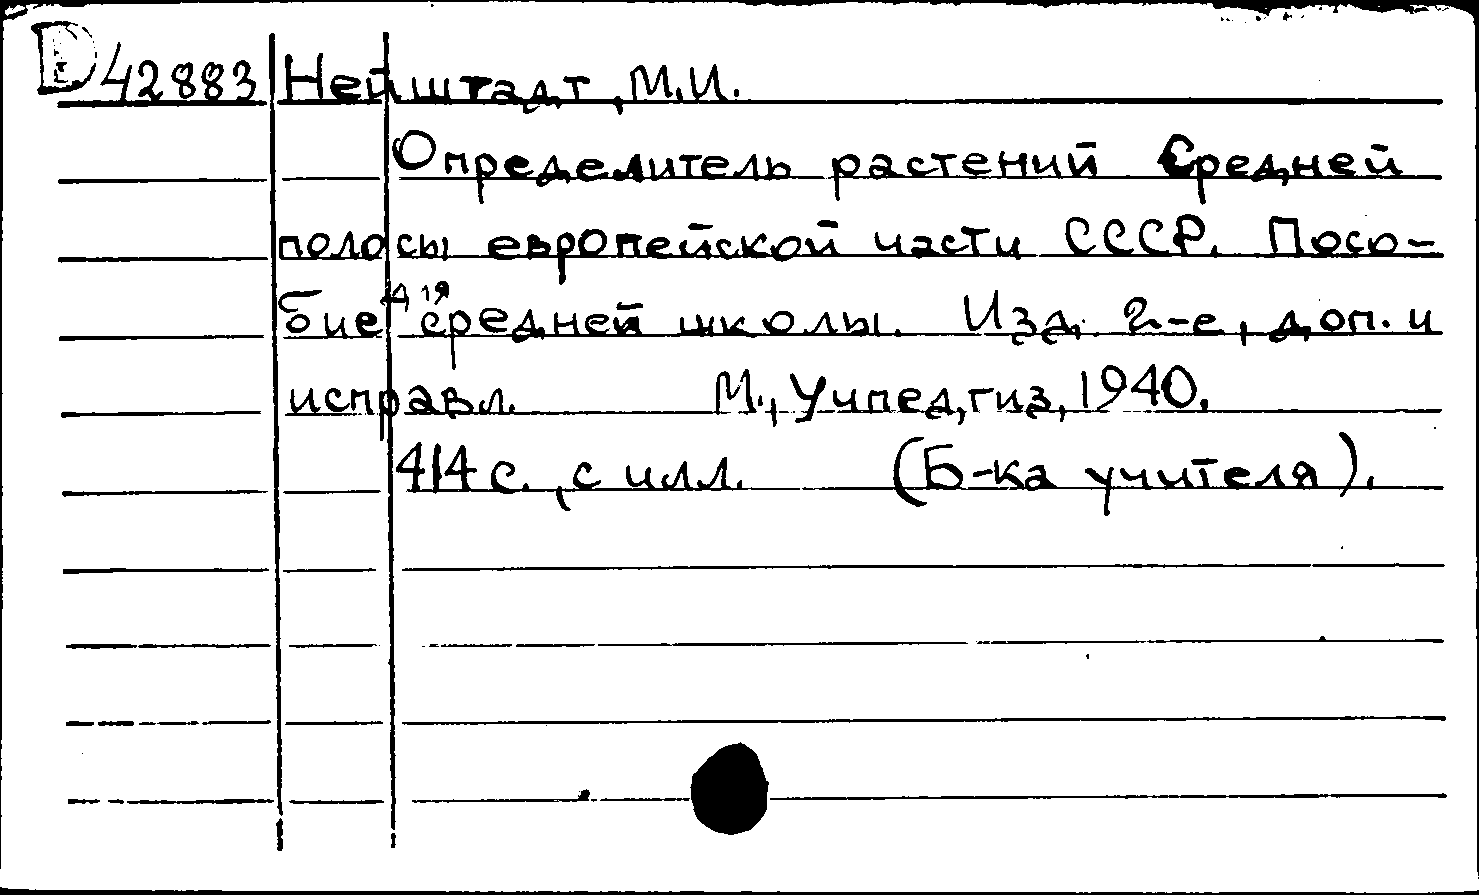 D 42883 Нейштадт, М.И.
Определитель растений Средней
полосы европейской части СССР. Посо-
бие для средней школы. Изд. 2-е, доп. и
исправл. М., Учпедгиз, 1940.
414 с., с илл. (Б-ка учителя).